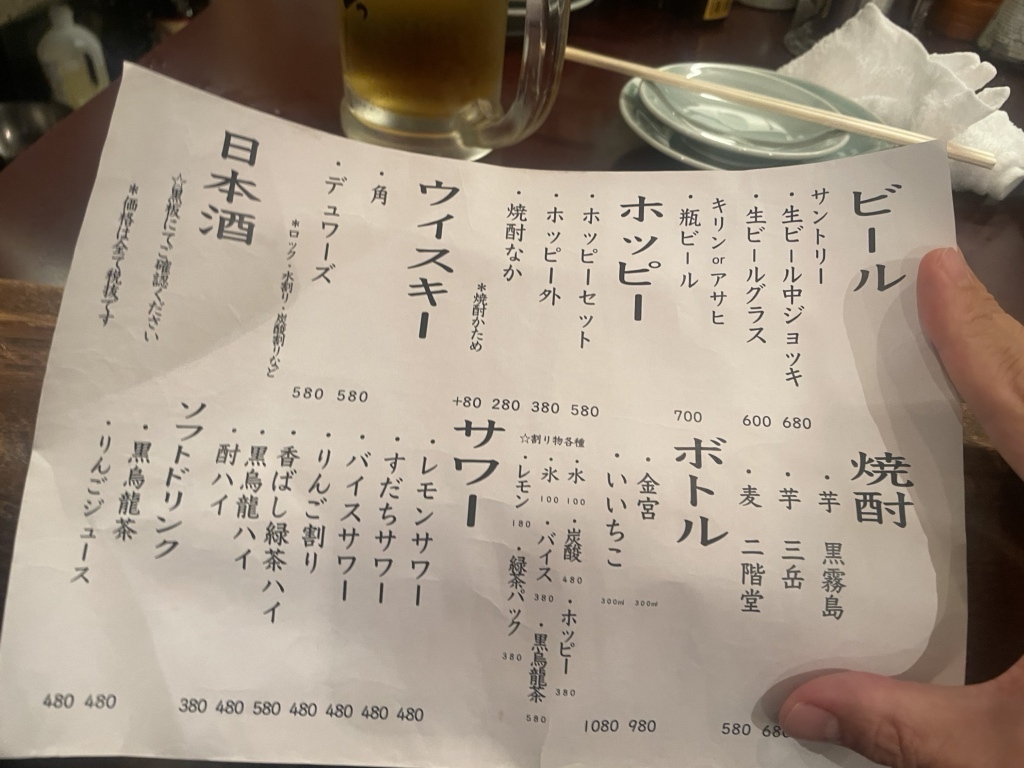 ビール
サントリー
・生ビール中ジョッキ 680
・生ビールグラス 600
キリンorアサヒ
・瓶ビール 700
ホッピー
・ホッピーセット 580
・ホッピー外 380
・焼酎なか 280
*焼酎かため +80
ウイスキー
・角 580
・デュワーズ 580
*ロック・水割り・炭酸割りなど
日本酒
☆黒板にてご確認ください
*価格は全て税抜です
焼酎
・芋 黒霧島
・芋 三岳
・麦 二階堂 580
ボトル
・金宮 300ml 980
・いいちこ 300ml 1080
☆割り物各種
・水 100 ・炭酸 480 ・ホッピー 380
・氷 100 ・バイス 380 ・黒烏龍茶 580
・レモン 180 ・緑茶パック 380
サワー
・レモンサワー 480
・すだちサワー 480
・バイスサワー 480
・りんご割り 480
・香ばし緑茶ハイ 580
・黒烏龍ハイ 480
・酎ハイ 380
ソフトドリンク
・黒烏龍茶 480
・りんごジュース 480